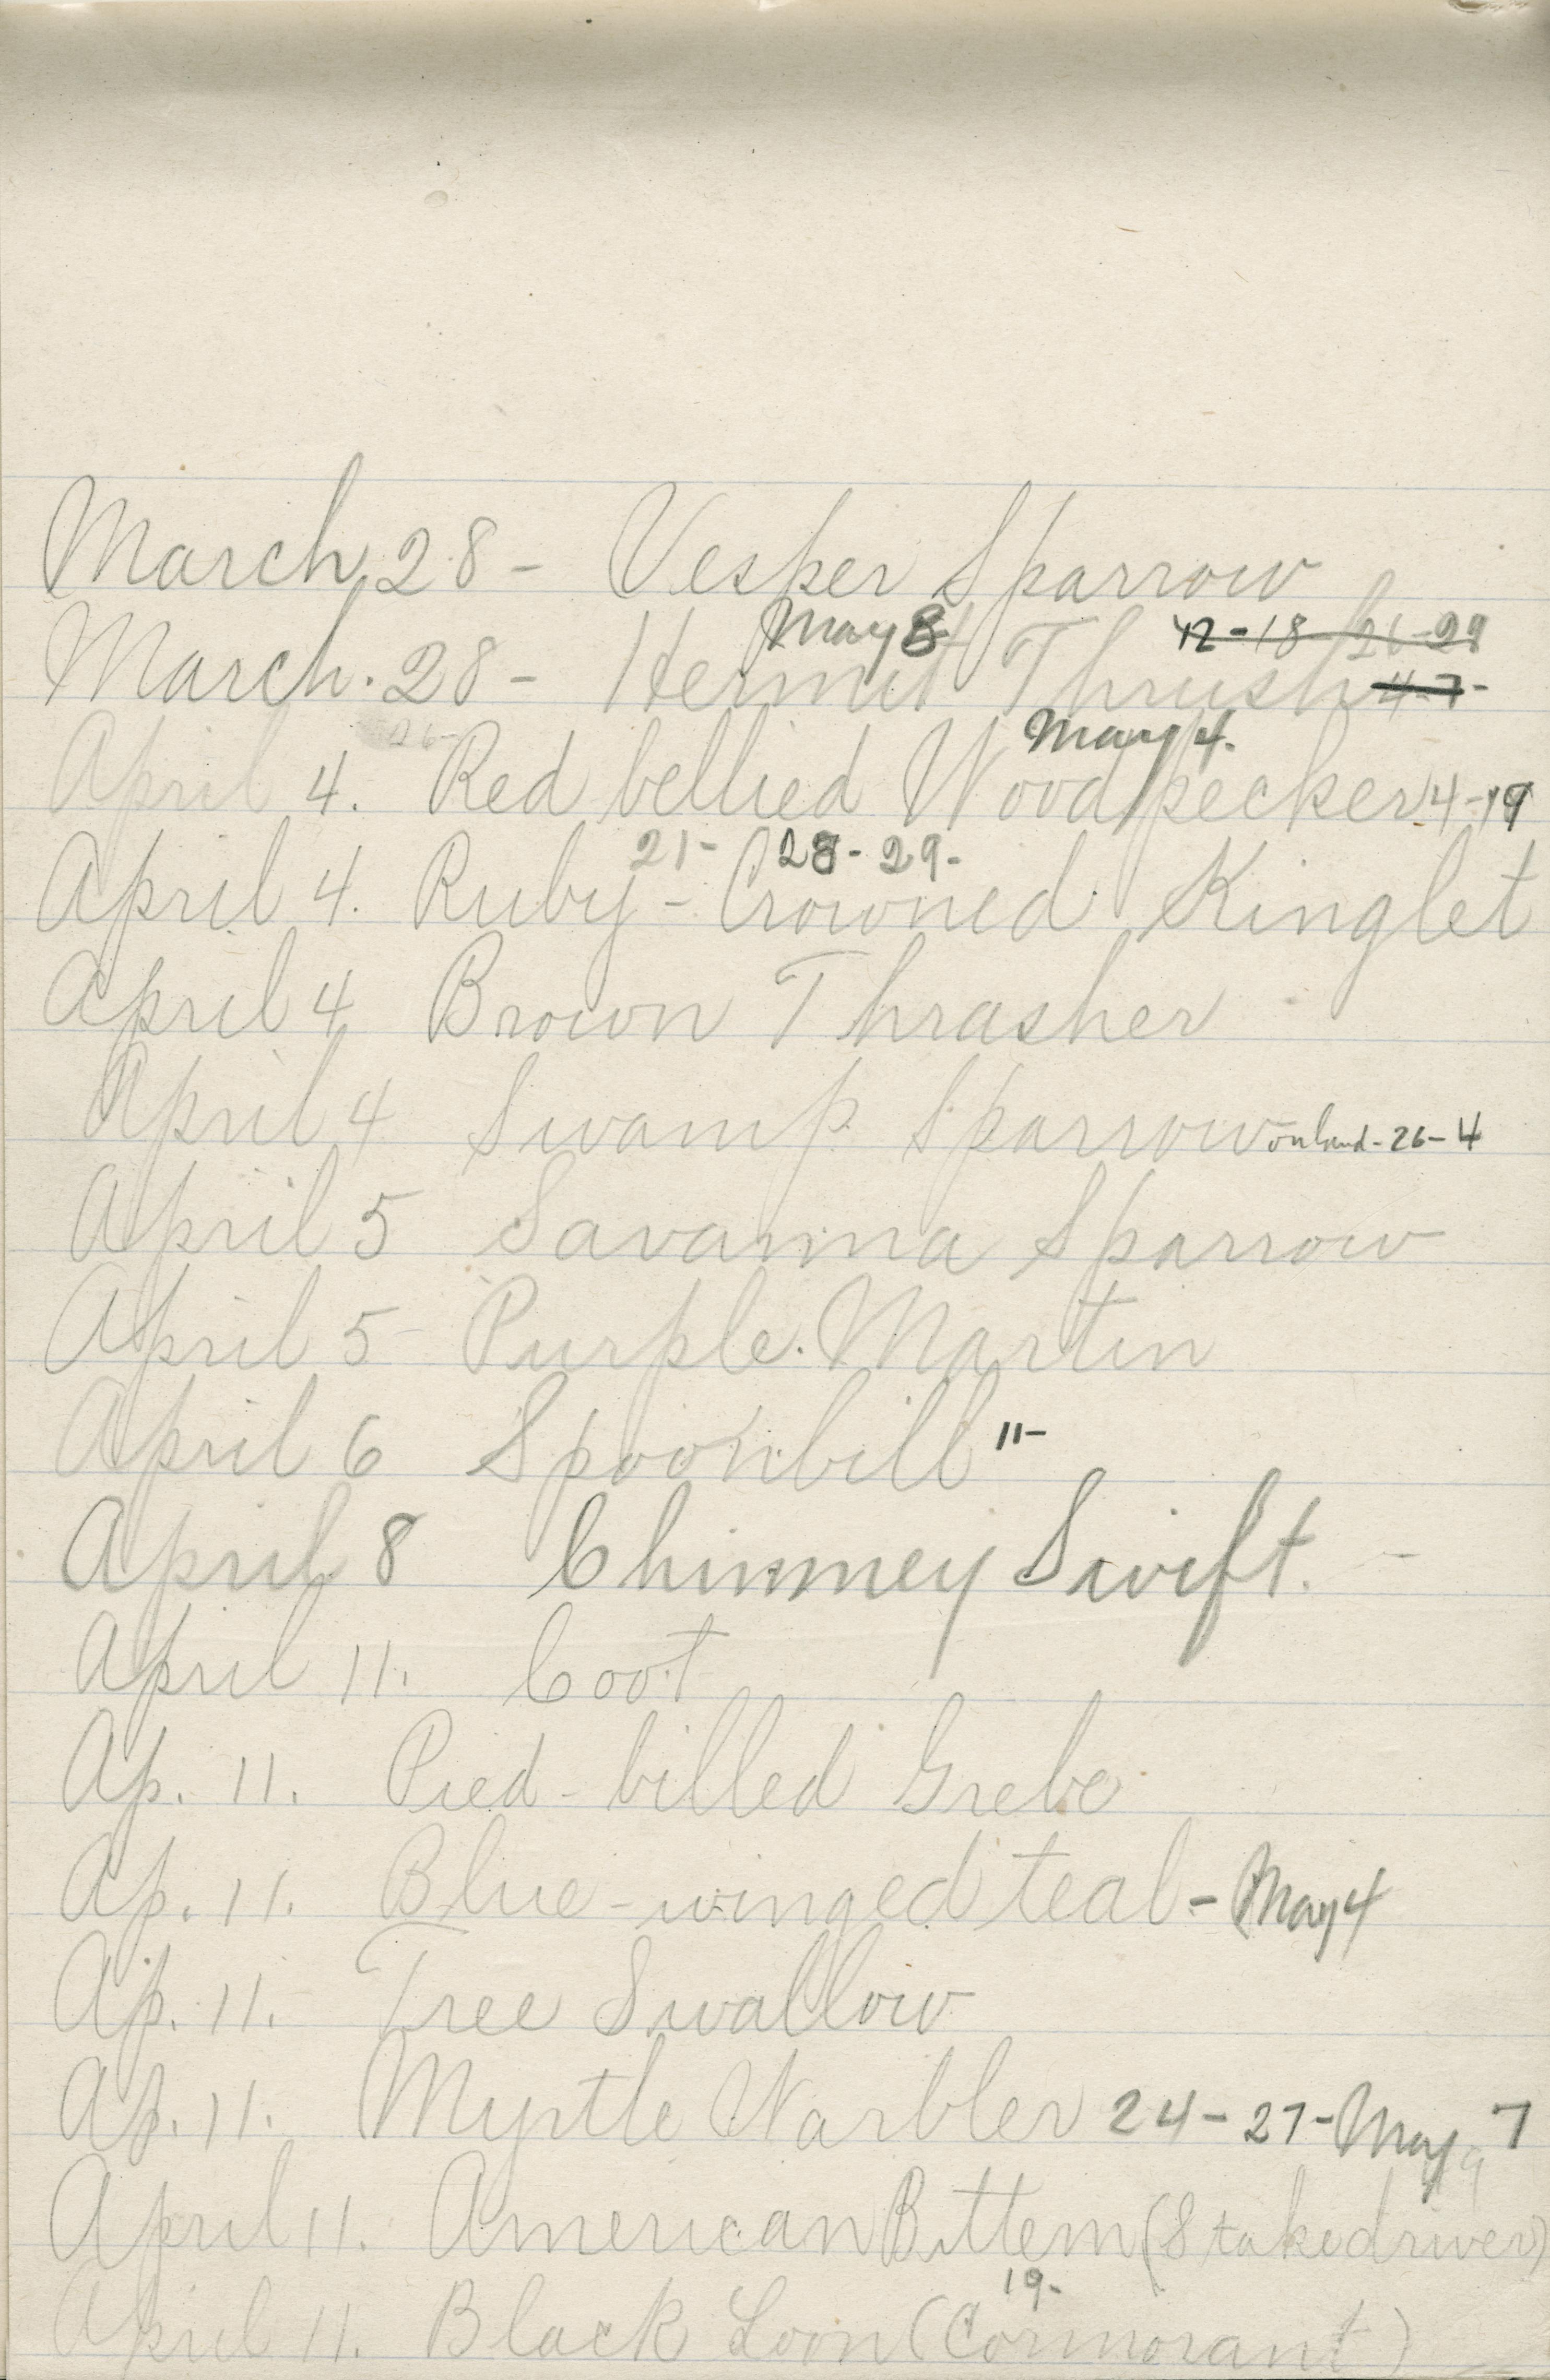 March 28 - Vesper Sparrow
May 8 12-18-26-29
March. 28 - Hermit Thrush 4-7-
26- May 4.
April 4. Red bellied Woodpecker 4-19
21- 28- 29-
April 4. Ruby-Crowned Kinglet
April 4 Brown Thrasher
April 4 Swamp Sparrow on land-26-4
April 5 Savanna Sparrow
April 5 Purple Martin
April 6 Spoonbill 11-
April 8 Chimney Swift. -
April 11. Coot
Ap. 11. Pied-billed Grebe
Ap. 11. Blue-winged teal - May 4
Ap. 11. Tree Swallow
Ap. 11. Myrtle Warbler 24-27-May 7
9
April 11. American Bittern (Stakedriver)
19-
April 11. Black Loon (Cormorant)